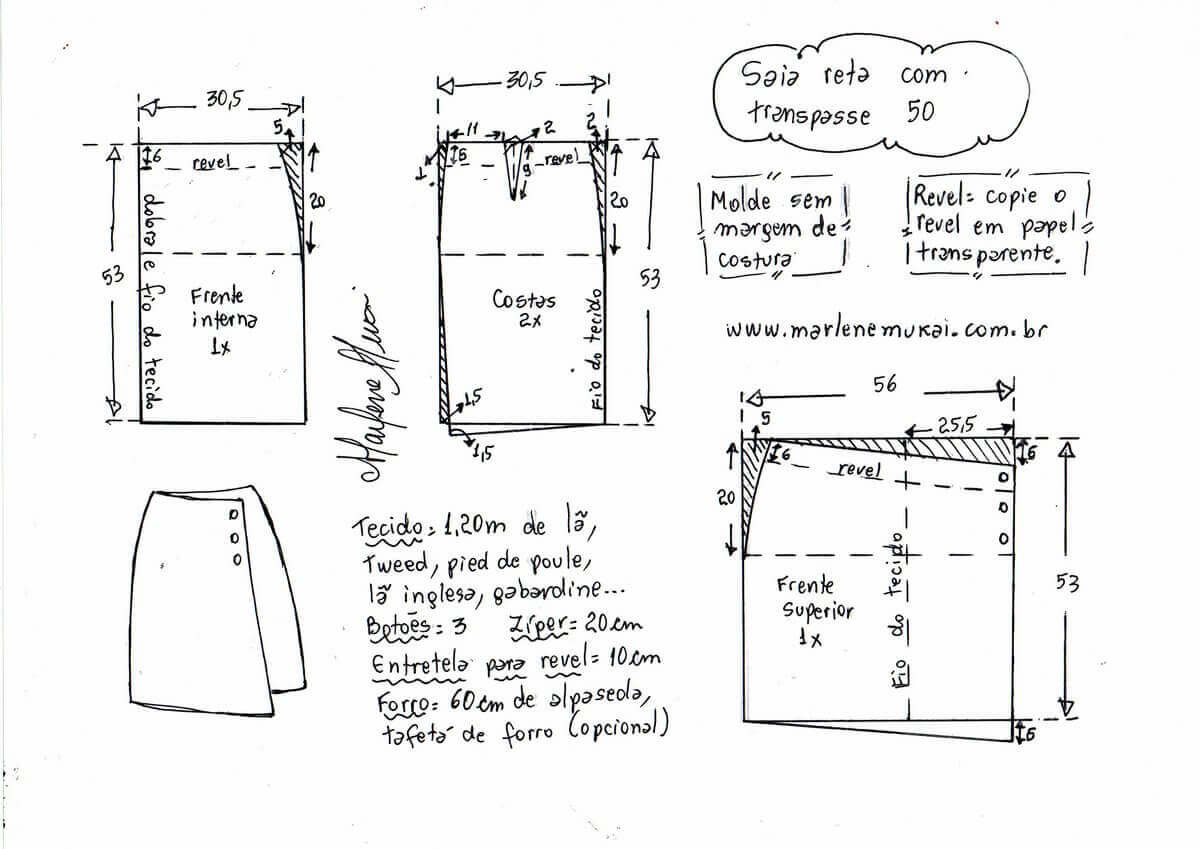 Saia reta com
transpasse 50
Molde sem
margem de
costura
Revel= copie o
revel em papel
transparente.
www.marlenemukai.com.br
30,5
5
6
revel
20
53
dobra e fio do tecido
Frente
interna
1x
30,5
11
2
2
1
6
9
revel
20
53
Costas
2x
Fio do tecido
1,5
1,5
56
5
25,5
6
6
revel
20
53
Frente
Superior
1x
Fio do tecido
6
Tecido= 1,20m de lã,
Tweed, pied de poule,
lã inglesa, gabardine...
Botões= 3 Zíper= 20cm
Entretela para revel= 10cm
Forro= 60cm de alpaseda,
tafetá de forro (opcional)